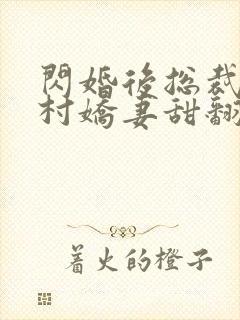 閃婚後總裁
村嬌妻甜翻
著火的橙子